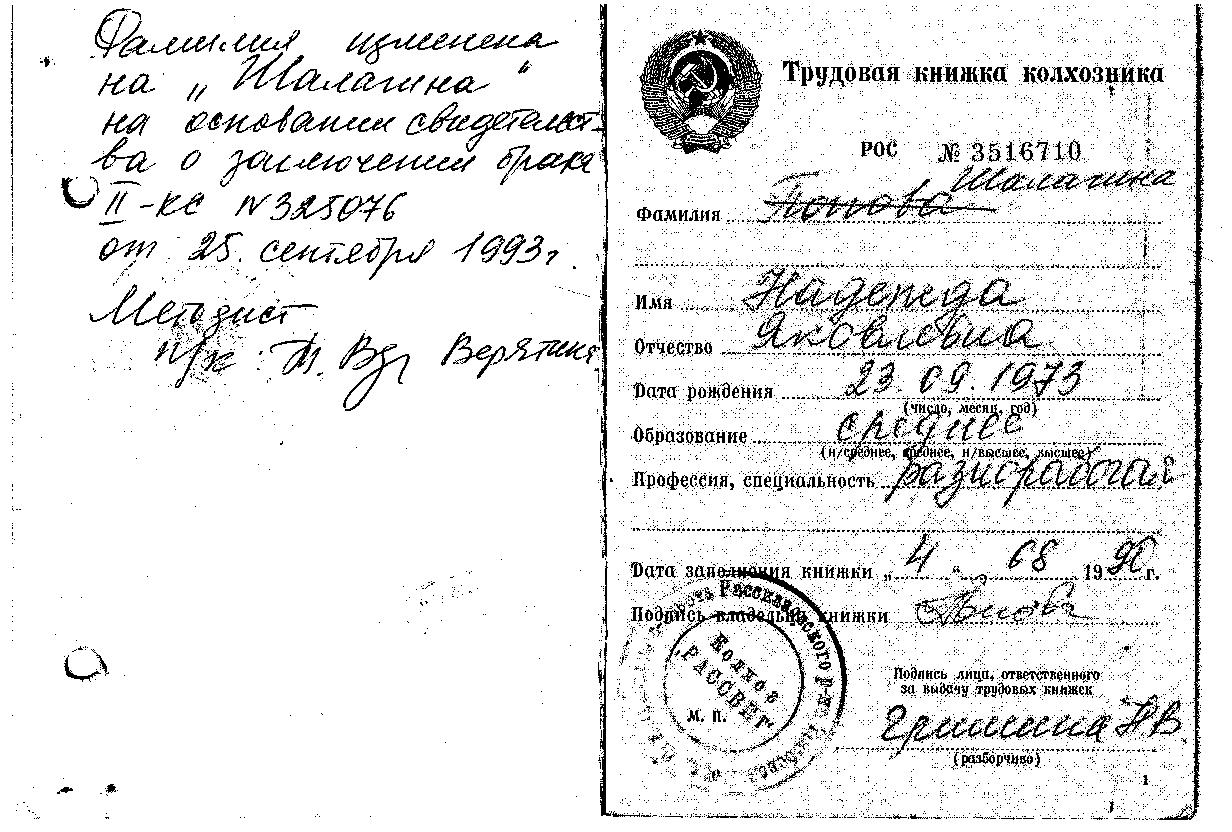 Фамилия изменена
на „Шалагина“
на основании свидетельст-
ва о заключении брака
II-КС N 325076
от 25. сентября 1993г.
Методист
Трудовая книжка колхозника
РОС № 3516710
Шалагина
Фамилия Попова
Имя Надежда
Отчество Яковлевна
Дата рождения 23.09.1973
(число, месяц, год)
Образование среднее
(н/среднее, среднее, н/высшее, высшее)
Профессия, специальность разнорабочая
Дата заполнения книжки „4“ 08 1990г.
Подпись владельца книжки
Рассказовского р-на
Колхоз
„РАССВЕТ“
М. П.
Подпись лица, ответственного
за выдачу трудовых книжек
Гришина Н В
(разборчиво)
1